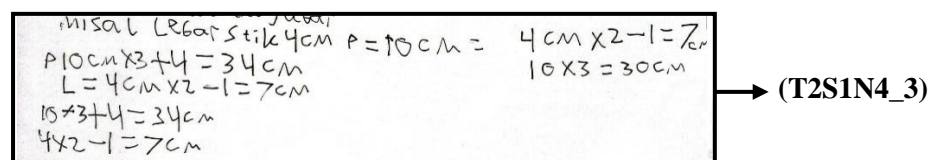 misal Lebar stik 4cm P=10cm = 4cm x2-1=7cm
P10cm x3+4=34cm 10x3=30cm
L=4cm x2-1=7cm
10x3+4=34cm
4x2-1=7cm
(T2S1N4_3)